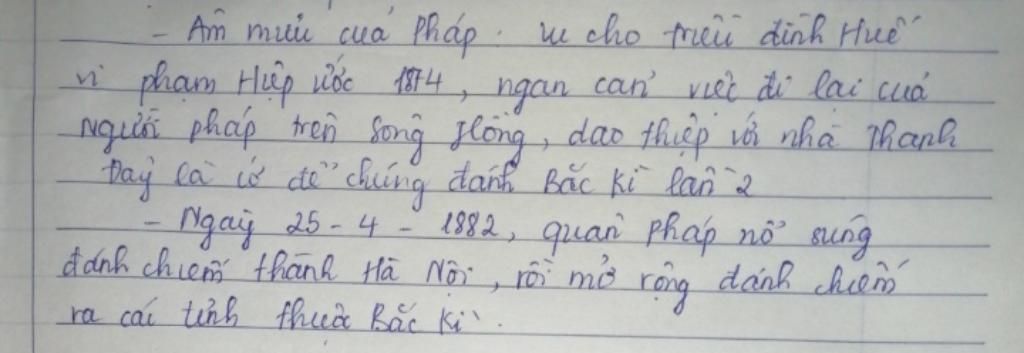 - Âm mưu của Pháp. vu cho triều đình Huế
vi phạm Hiệp ước 1874, ngan cản việc đi lại của
Người pháp trên Sông Hồng, dao thiệp với nhà Thanh
Đây là cớ để chúng đánh Bắc Kì lần 2
- Ngày 25 - 4 - 1882, quân Pháp nổ súng
đánh chiếm thành Hà Nội, rồi mở rộng đánh chiếm
ra các tỉnh thuộc Bắc Kì.